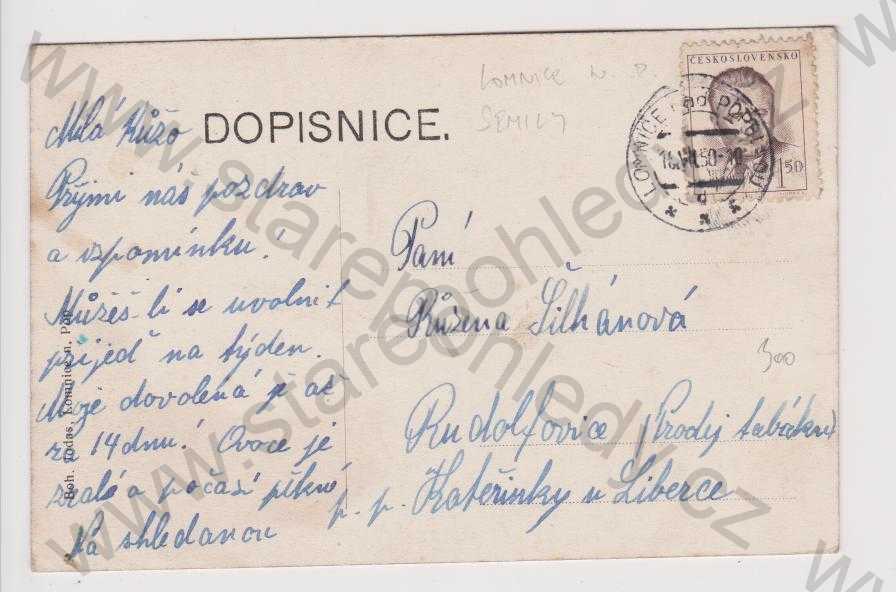 LOMNICE N. P.
SEMILY
ČESKOSLOVENSKO
1.50
LOMNICE NAD POPELKOU
DOPISNICE.
Milá Růžo
Přijmi náš pozdrav
a vzpomínku!
Můžeš-li se uvolnit
přijeď na týden.
Moje dovolená je až
za 14 dnů! Ovoce je
zralé a počasí pěkné
Na shledanou
Paní
Růžena Šilhánová
Rudolfovice (Prodej tabáku)
p. p. Kateřinky u Liberce
300
Boh. Jodas, Lomnice n. Pop.
www.starepohledy.cz